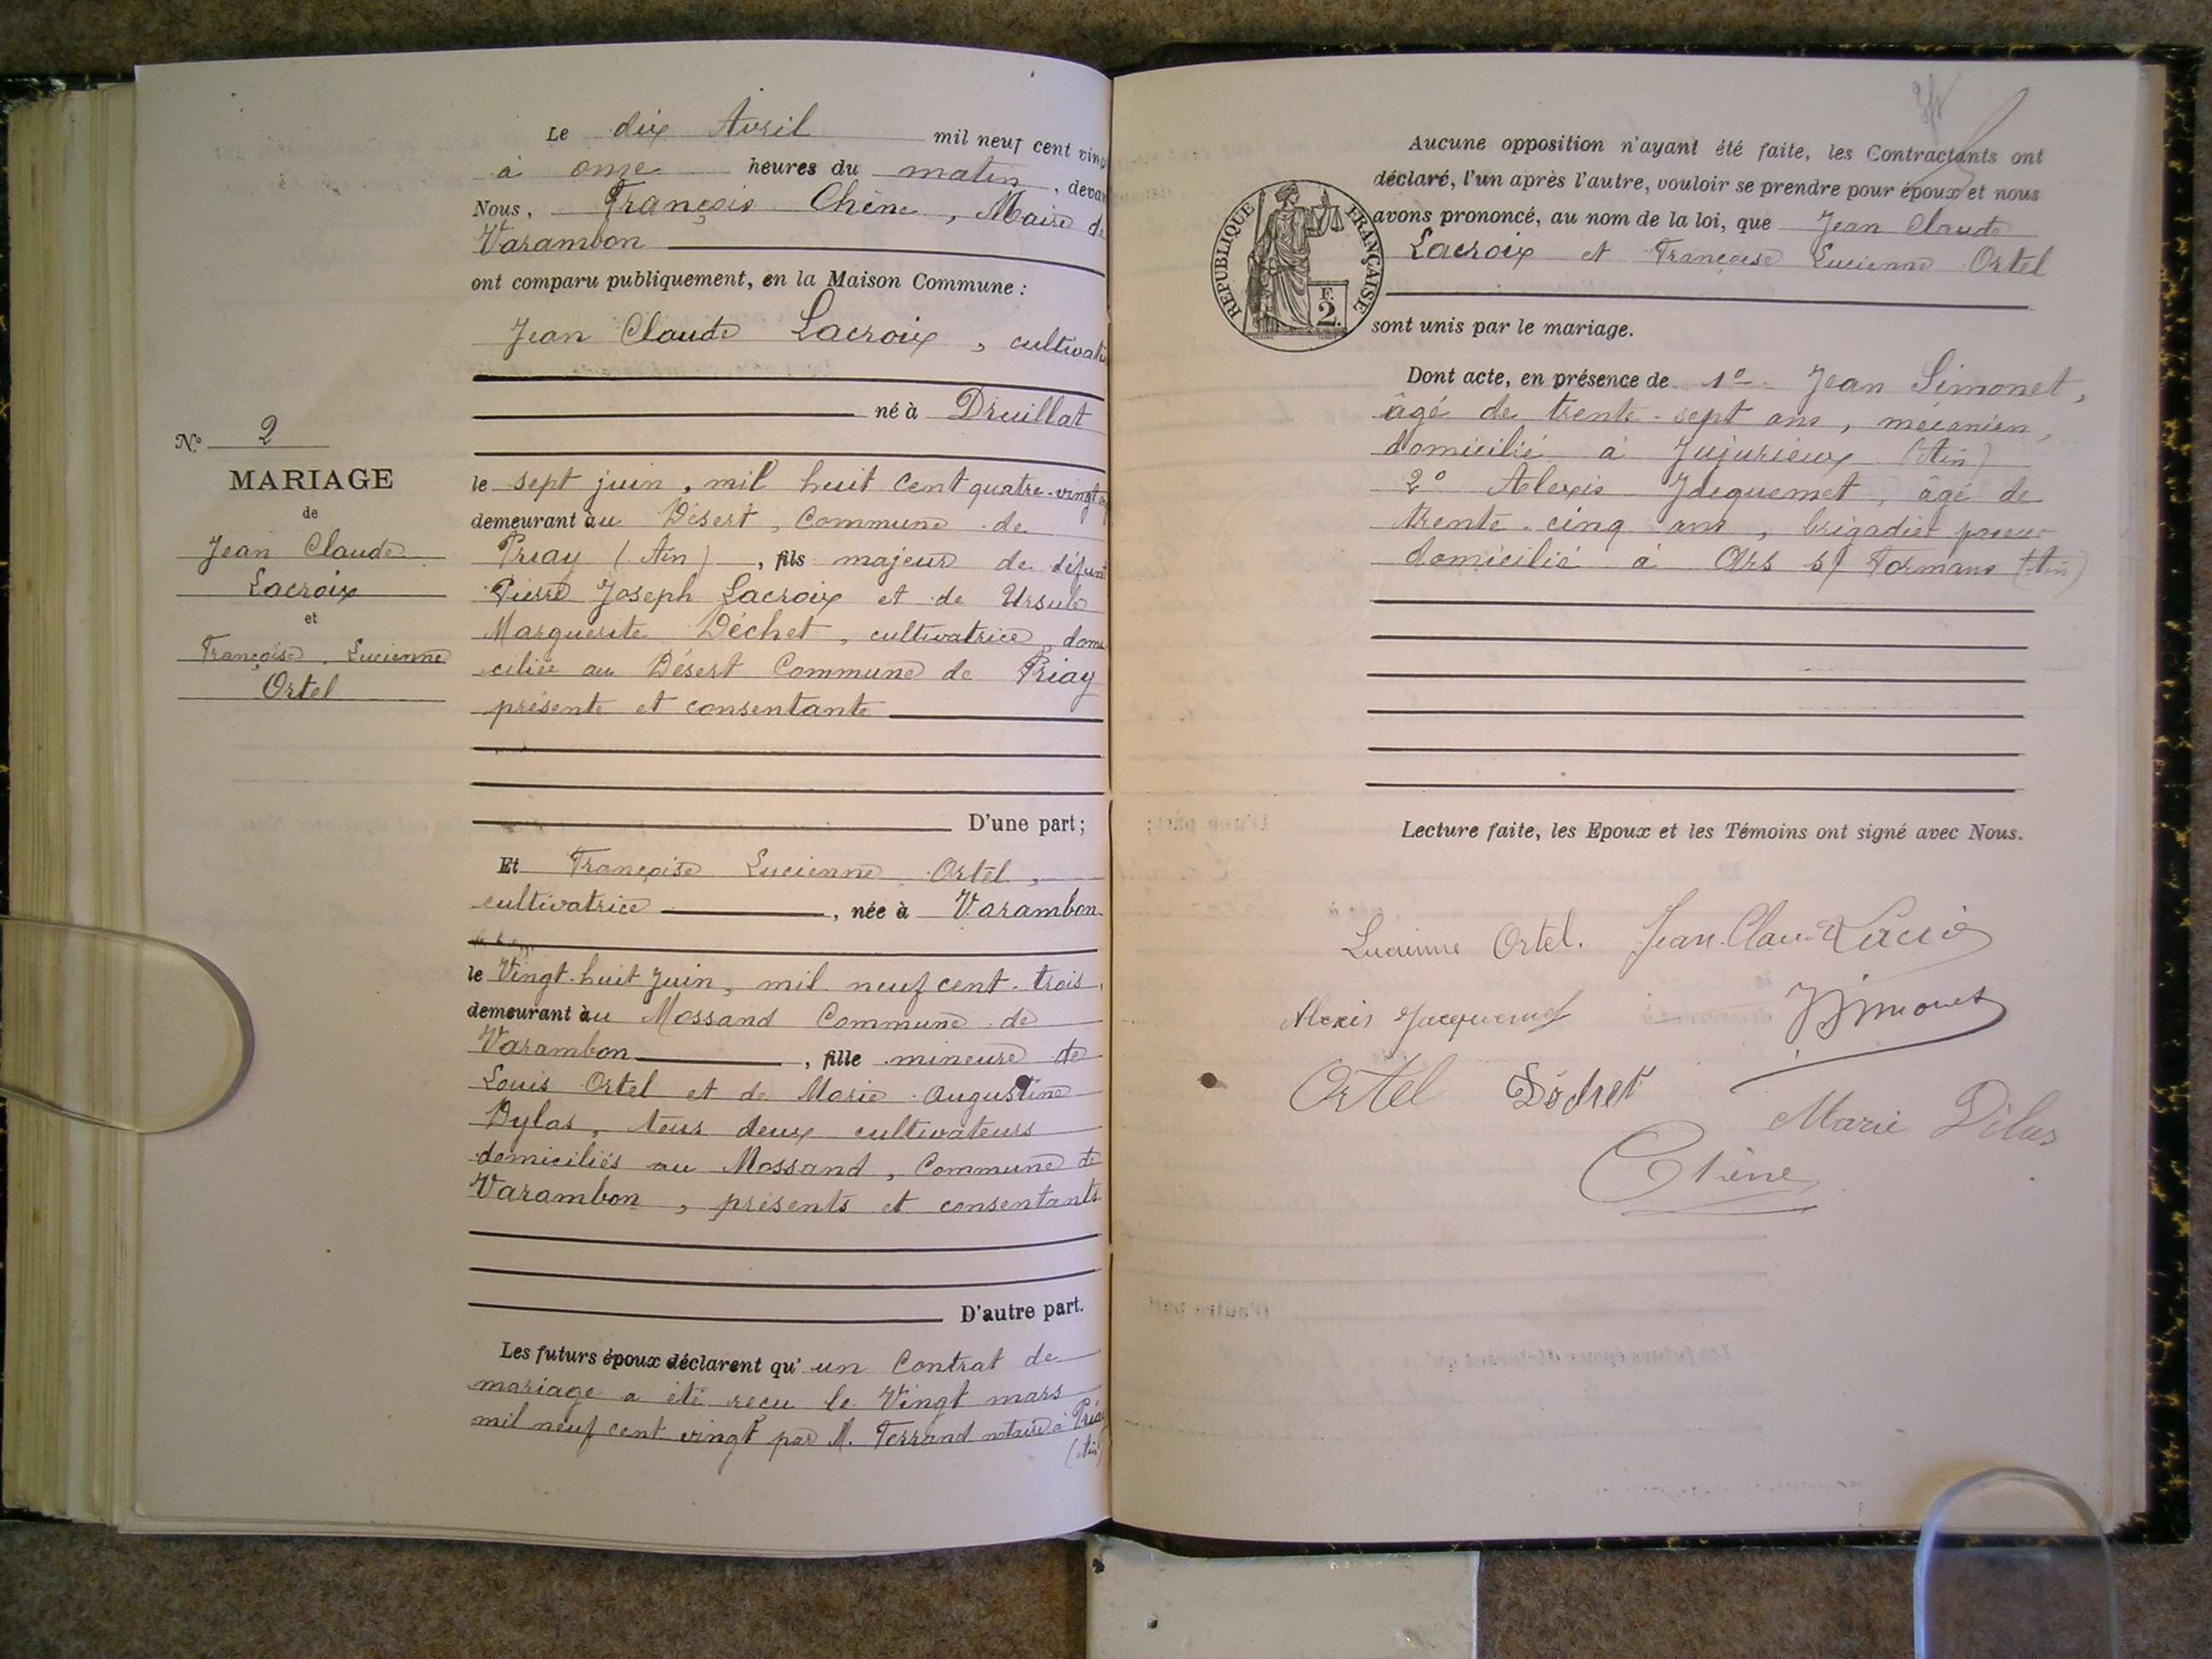 Le dix Avril mil neuf cent ving
à onze heures du matin, devan
Nous, François Chêne, Maire de
Varambon
ont comparu publiquement, en la Maison Commune :
Jean Claude Lacroix, cultivate
né à Druillat
le sept juin, mil huit cent quatre-vingt
demeurant au Désert, Commune de
Priay (Ain), fils majeur de défunt
Pierre Joseph Lacroix et de Ursule
Marguerite Déchet, cultivatrice, domi
ciliée au Désert Commune de Priay
présente et consentante
D'une part ;
Et Françoise Lucienne Ortel,
cultivatrice, née à Varambon
le Vingt-huit Juin, mil neuf cent-trois,
demeurant au Mossand Commune de
Varambon, fille mineure de
Louis Ortel et de Marie Augustine
Dylas, tous deux cultivateurs
domiciliés au Mossand, Commune de
Varambon, présents et consentants
D'autre part.
Les futurs époux déclarent qu'un Contrat de
mariage a été reçu le Vingt mars
mil neuf cent vingt par M. Ferrand notaire à Priay
(Ain)
N° 2
MARIAGE
de
Jean Claude
Lacroix
et
Françoise Lucienne
Ortel
Aucune opposition n'ayant été faite, les Contractants ont
déclaré, l'un après l'autre, vouloir se prendre pour époux et nous
avons prononcé, au nom de la loi, que Jean Claude
Lacroix et Françoise Lucienne Ortel
sont unis par le mariage.
REPUBLIQUE FRANÇAISE
F.
2.
Dont acte, en présence de 1° Jean Simonet,
âgé de trente-sept ans, mécanien,
domicilié à Jujurieux (Ain)
2° Alexis Jacquemet, âgé de
trente-cinq ans, brigadier poseur
domicilié à Ars s/ Formans (Ain)
Lecture faite, les Epoux et les Témoins ont signé avec Nous.
Lucienne Ortel. Jean-Claude Lacroix
Alexis Jacquemet JSimonet
Ortel Déchet
Marie Dilas
Chêne